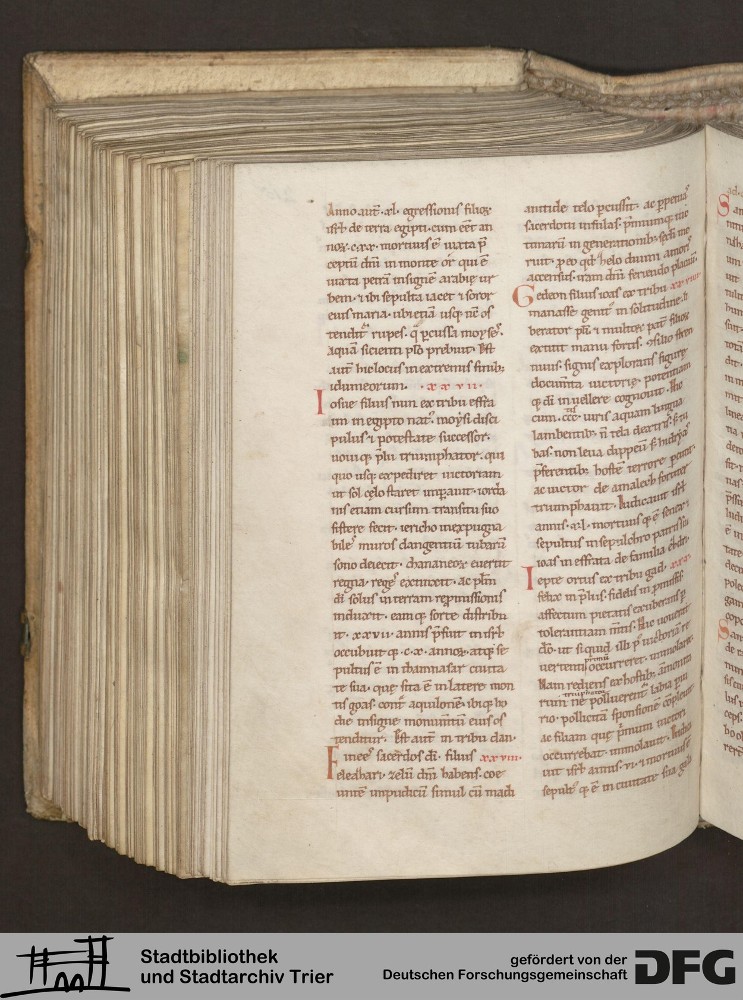 Anno aut̄ .xl. egressionis filioꝝ
isrl̄ de terra egipti. cum eēt an
noꝝ .c.xx. mortuus ē iuxta p̄
ceptū dn̄i in monte or qui ē
iuxta petrā insignē arabię ur
bem. ubi sepulta iacet & soror
eius maria. ubi etiā usq; nc̄ os
tendit̄ rupes. q̄ ꝑcussa moyse
aquā sicienti pl̄o prebuit. Est
aut̄ hic locus in extremis finib;
idumeorum. .xxvii.
Iosue filius nun ex tribu effra
im in egypto nat᷒. moysi disci
pulus & potestate successor.
noui q; pl̄i triumphator. qui
quo usq; expediret uictoriam
ut sol celo staret imꝑauit. iorda
nis etiam cursum transitu suo
sistere fecit. iericho inexpugna
bile᷒ muros clangentiū tubarū
sono deiecit. chananeos euertit
regna. rege᷒ extinxit. ac pl̄m
dī solus in terram repromissionis
induxit. eam q; sorte distribu
it. xxvii. annis p̄fuit in isrl̄
occubuit q; .c.x. annoꝝ. atq; se
pultus ē in thamnasar ciuita
te sua. quę sita ē in latere mon
tis goas. cont̄ aquilonē. ibi q; ho
die insigne monumtū eius os
tenditur. Est aut̄ in tribu dan.
Finee᷒ sacerdos dī. filius xxviii.
eleazari. zelū dn̄i habens. coe
untē impudicū simul cū madi
anitide telo ꝑcussit. ac ꝑpetua᷒
sacerdotii infulas. p̄mium q; me
ritarū in generationib; sibi me
ruit. ꝓ eo qd̄ zelo diuini amor᷒
accensus. iram dn̄i feriendo placuit.
Gedeon filius ioas ex tribu xxviiii
manasse genit᷒ in solitudine. li
berator pl̄i & multoꝝ pat̄ filioꝝ
extitit manu fortis. consilio stren
nuus. signis explorans figurę
documta uictorię. potentiam
q; dī in uellere cognouit. Hic
cum .ccc.tis uiris aquam lingua
lambentib; n̄ tela dextris. s; tu
bas. non leua clippeū s; hidrias
p̄ferentib; hostē terrore ꝑemit.
ac uictor de amalech fortiter
triumphauit. Iudicauit isrl̄
annis .xl. mortuus q; ē senex &
sepultus in sepulchro patris sui
ioas in effrata de familia ezdri.
Iepte ortus ex tribu gad. xxx.
felix in p̄liis. fidelis in p̄missis
affectum pietatis exuberans ꝑ
tolerantiam mtis. Hic uouerat
dō. ut si quid illi p᷒ uictoriā re
primitus
uertenti occurreret. immolaret.
Nam rediens ex hostib; āmonita
triumphator
rum ne polluerent̄ labia priu
rio. pollicitā sponsione cōpleuit.
ac filiam quę p̄mum uictori
occurrebat. immolauit. Iudica
uit isrl̄ annis .vi. & mortuus ē
sepult᷒ q; ē in ciuitate sua gala
Stadtbibliothek
und Stadtarchiv Trier
gefördert von der
Deutschen Forschungsgemeinschaft
DFG